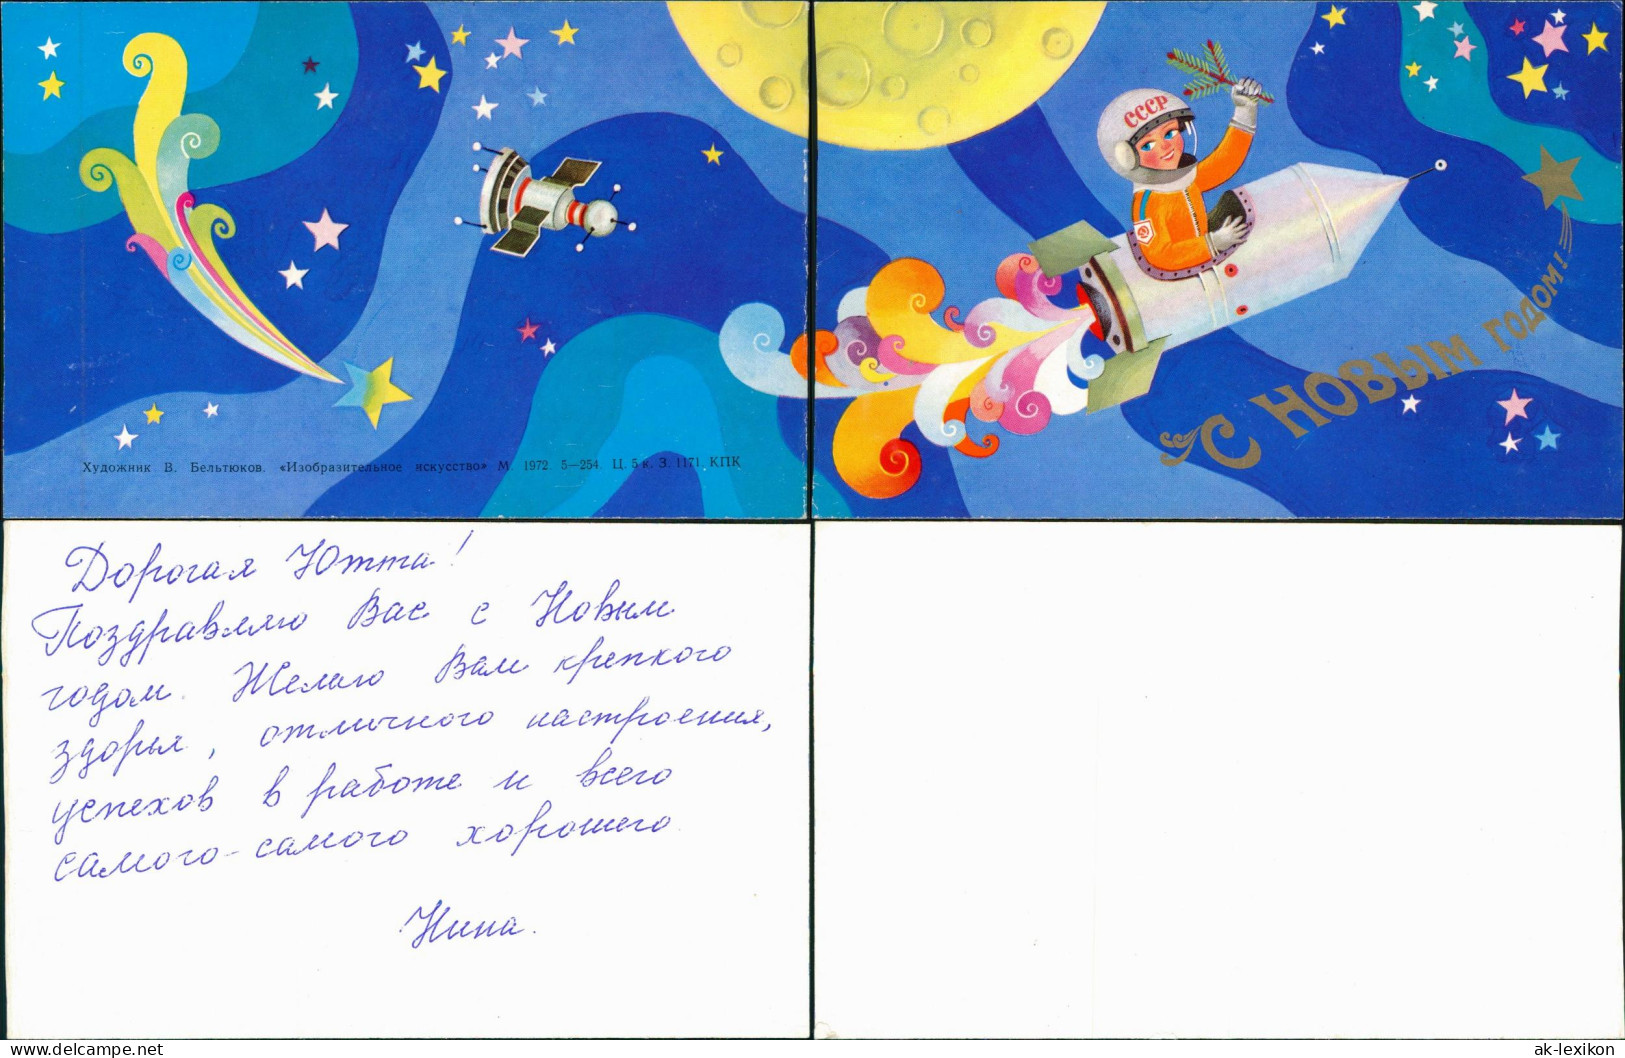 СССР
С НОВЫМ ГОДОМ!
Художник В. Бельтюков. «Изобразительное искусство» М. 1972. 5—254. Ц. 5 к. З. 1171. КПК
Дорогая Ютта!
Поздравляю Вас с Новым
годом. Желаю Вам крепкого
здорья, отличного настроения,
успехов в работе и всего
самого-самого хорошего.
Нина.
the delcampe.net website
ak-lexikon